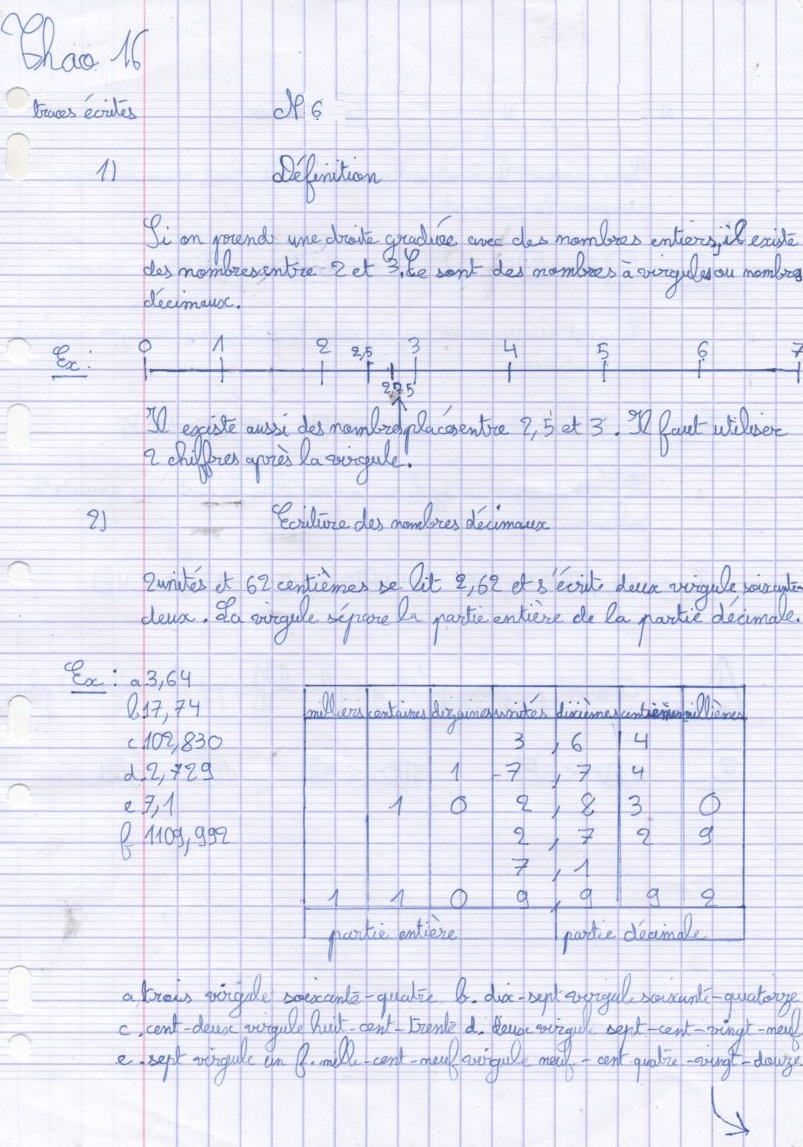 Thao 16
traces écrites N 6
1) Définition
Si on prend une droite graduée avec des nombres entiers, il existe
des nombres entre 2 et 3. Ce sont des nombres à virgules ou nombres
décimaux.
Ex: 0 1 2 2,5 3 4 5 6 7
2,75
Il existe aussi des nombres placés entre 2,5 et 3. Il faut utiliser
2 chiffres après la virgule.
2) Ecriture des nombres décimaux
2 unités et 62 centièmes se lit 2,62 et s'écrit deux virgule soixante-
deux. La virgule sépare la partie entière de la partie décimale.
Ex: a 3,64
b. 17,74
c. 102,830
d. 2,729
e 7,1
f 1109,992
milliers centaines dizaines unités dixièmes centièmes millièmes
3 , 6 4
1 7 , 7 4
1 0 2 , 8 3 0
2 , 7 2 9
7 , 1
1 1 0 9 , 9 9 2
partie entière partie décimale
a. trois virgule soixante-quatre b. dix-sept virgule soixante-quatorze
c. cent-deux virgule huit-cent-trente d. deux virgule sept-cent-vingt-neuf
e. sept virgule un f. mille-cent-neuf virgule neuf-cent quatre-vingt-douze